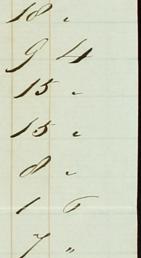 18 "
9 4
15 "
15 "
8 "
1 6
7 "